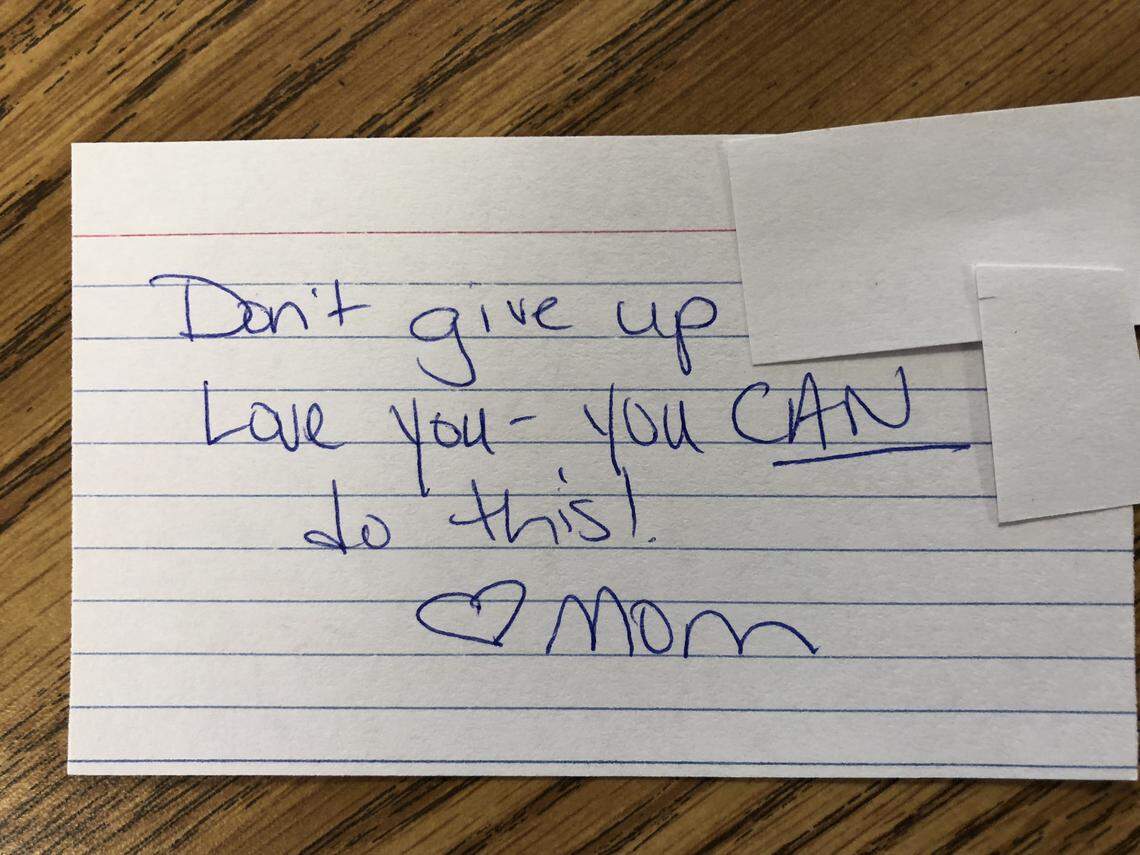 Don't give up
Love you - you CAN
do this!
♡ Mom